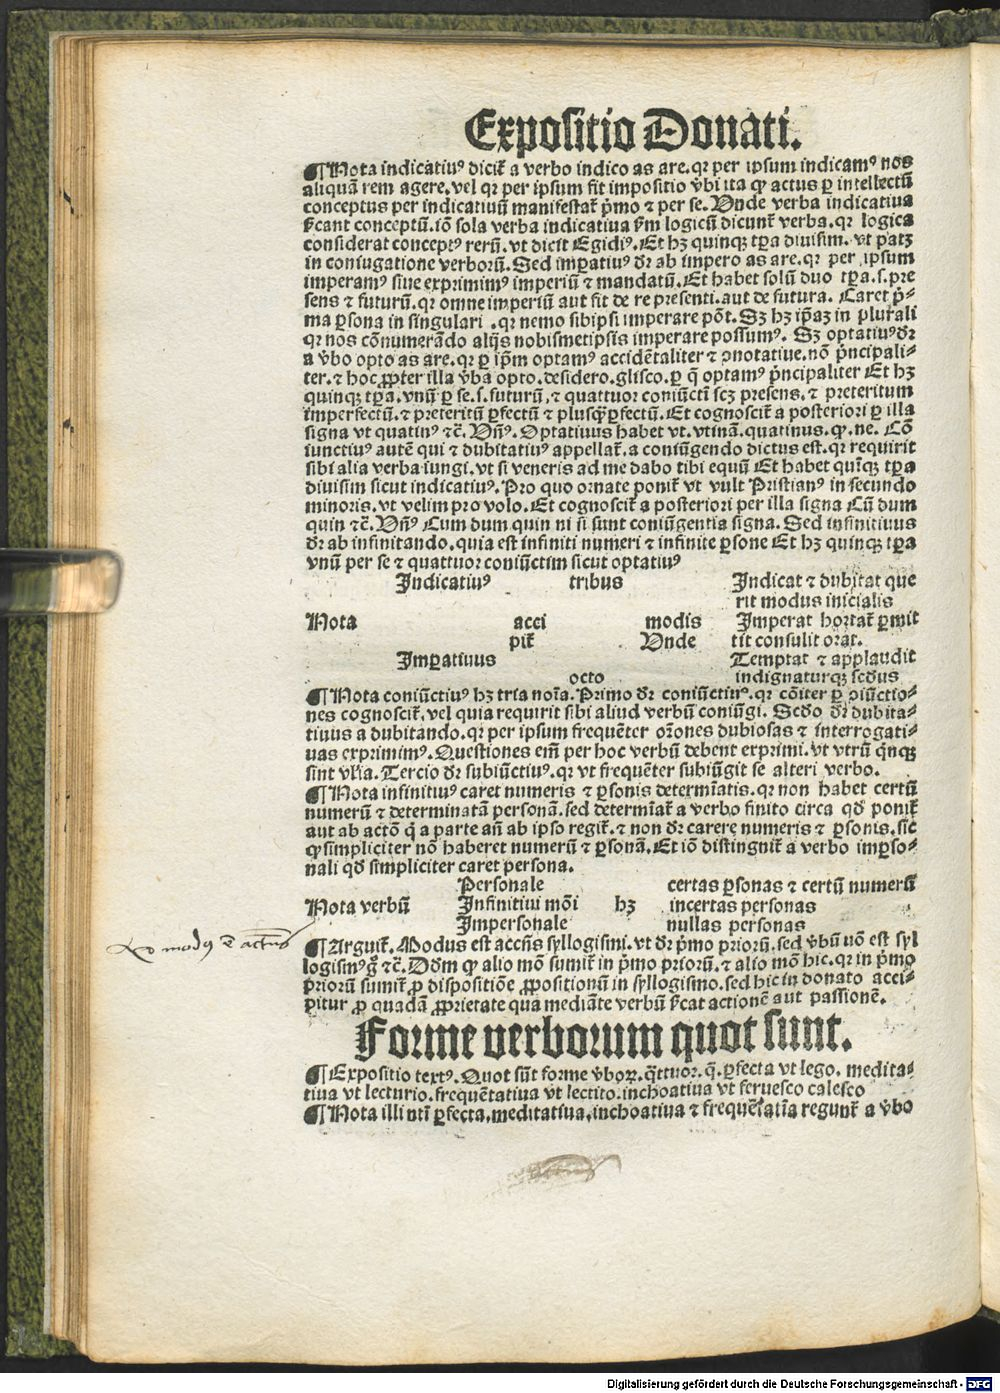 Expositio Donati.
¶Nota indicatiuꝰ diciť a verbo indico as are.qr per ipsum indicamꝰ nos
aliquā rem agere.vel qr per ipsum fit impositio v̄bi ita ꝙ actus ꝑ intellectū
conceptus per indicatiuū manifestať pͥmo ⁊ per se.Vnde verba indicatiua
sͨcant conceptū.iō sola verba indicatiua sm̄ logicū dicunť verba.qr logica
considerat conceptꝰ rerū.vt dicit Egidiꝰ.Et hꝫ quinqꝫ tꝑa diuisim.vt patꝫ
in coniugatione verborū.Sed imꝑatiuꝰ dr̄ ab impero as are.qr per ipsum
imperamꝰ siue exprimimꝰ imperiū ⁊ mandatū.Et habet solū duo tꝑa.s.pre
sens ⁊ futurū.qr omne imperiū aut fit de re presenti.aut de futura. Caret pͥ-
ma ꝑsona in singulari .qr nemo sibiipsi imperare pōt. Sꝫ hꝫ ip̄aꝫ in plurali
qr nos cōnumerādo alijs nobismetipsis imperare possumꝰ. Sꝫ optatiuꝰ dr̄
a v̄bo opto as are.qr ꝑ ip̄m optamꝰ accidētaliter ⁊ ꝯnotatiue.nō pͥncipali-
ter.⁊ hoc ꝓpter illa v̄ba opto.desidero.glisco.ꝑ q̄ optamꝰ pͥncipaliter Et hꝫ
quinqꝫ tꝑa.vnū ꝑ se.s.futurū.⁊ quattuor coniūctī scꝫ presens.⁊ preteritum
imperfectū.⁊ preteritū ꝑfectū ⁊ plusqꝫꝑfectū.Et cognosciť a posteriori ꝑ illa
signa vt quatinꝰ ⁊c̄.Vn̄ꝰ.Optatiuus habet vt.vtinā.quatinus.ꝙ.ne. Cō
iunctiuꝰ autē qui ⁊ dubitatiuꝰ appellať.a coniūgendo dictus est.qr requirit
sibi alia verba iungi.vt si veneris ad me dabo tibi equū Et habet quīqꝫ tꝑa
diuisim sicut indicatiuꝰ.Pro quo ornate poniť vt vult Pristianꝰ in secundo
minoris.vt velim pro volo.Et cognosciť a posteriori per illa signa Cū dum
quin ⁊c̄.Vn̄ꝰ Cum dum quin ni si sunt coniūgentia signa.Sed infinitiuus
dr̄ ab infinitando.quia est infiniti numeri ⁊ infinite ꝑsone Et hꝫ quinqꝫ tꝑa
vnū per se ⁊ quattuor coniūctim sicut optatiuꝰ
Indicatiuꝰ tribus Indicat ⁊ dubitat que
rit modus inicialis
Nota acci modis Imperat hortať ꝑmit
piť Vnde tit consulit orat.
Imꝑatiuus Temptat ⁊ applaudit
octo indignaturqꝫ scd̄us
¶Nota coniūctiuꝰ hꝫ tria noīa.Primo dr̄ coniūctiuꝰ.qr cōiter ꝑ ꝯiūctio-
nes cognosciť.vel quia requirit sibi aliud verbū coniūgi. Scd̄o dr̄ dubita-
tiuus a dubitando.qr per ipsum frequēter or̄ones dubiosas ⁊ interrogati-
uas exprimimꝰ.Questiones em̄ per hoc verbū debent exprimi.vt vtrū qͥnqꝫ
sint vl̄ia.Tercio dr̄ subiūctiuꝰ.qr vt frequēter subiūgit se alteri verbo.
¶Nota infinitiuꝰ caret numeris ⁊ ꝑsonis determīatis.qr non habet certū
numerū ⁊ determinatā personā.sed determīať a verbo finito circa qd̄ poniť
aut ab actō q̄ a parte an̄ ab ipso regiť.⁊ non dr̄ carere numeris ⁊ ꝑsonis.sic
ꝙ simpliciter nō haberet numerū ⁊ ꝑsonā.Et iō distingniť a verbo imꝑso-
nali qd̄ simpliciter caret persona.
Personale certas ꝑsonas ⁊ certū numerū
Nota verbū Infinitiui mōi hꝫ incertas personas
Impersonale nullas personas
modꝰ ē actus
¶Arguiť.Modus est accn̄s syllogismi.vt dr̄ pͥmo priorū.sed v̄bū nō est syl
logismꝰ gͦ ⁊c̄.Dd̄m ꝙ alio mō sumiť in pͥmo priorū.⁊ alio mō hic.qr in pͥmo
priorū sumiť ꝓ dispositiōe ꝓpositionū in syllogismo.sed hic in donato acci-
pitur ꝓ quadā ꝓprietate qua mediāte verbū sͨcat actionē aut passionē.
Forme verborum quot sunt.
¶Expositio textꝰ.Quot sūt forme v̄boꝝ.qͣttuor.q̄.ꝑfecta vt lego. medita-
tiua vt lecturio.frequētatiua vt lectito.inchoatiua vt feruesco calesco
¶Nota illi nt̄i ꝑfecta.meditatiua.inchoatiua ⁊ frequētatīa regunť a v̄bo
Digitalisierung gefördert durch die Deutsche Forschungsgemeinschaft - DFG